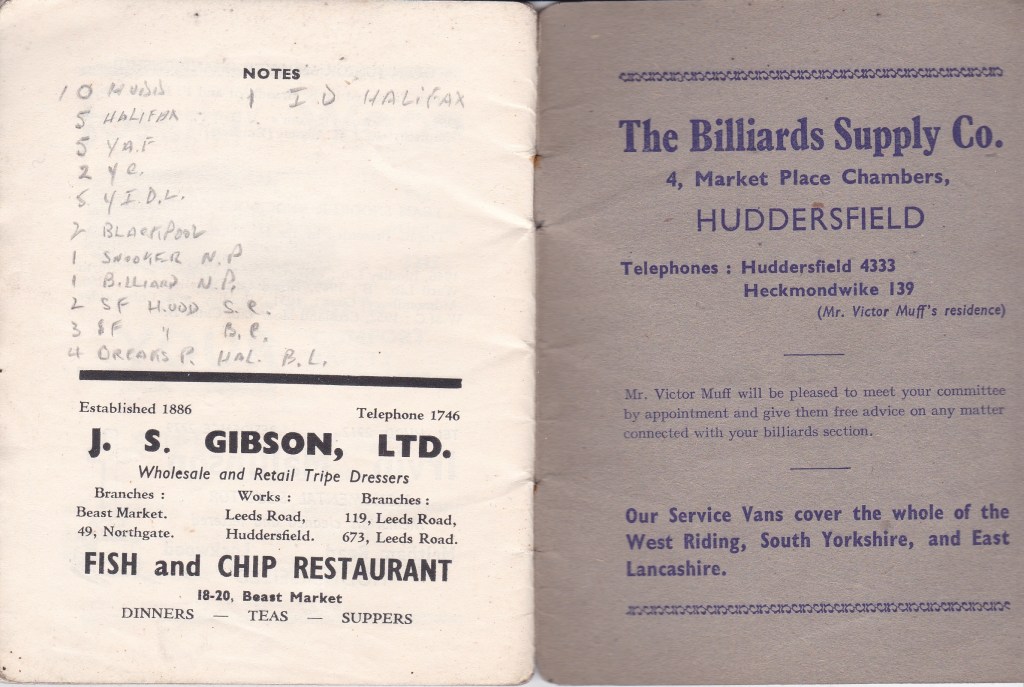 NOTES
10 HUDD 1 I.D HALIFAX
5 HALIFAX
5 Y A.F
2 Y C.
5 Y I.D.L.
2 BLACKPOOL
1 SNOOKER N.P
1 BILLIARD N.P.
2 SF HUDD S.C.
3 SF " B.C.
4 BREAKS P. HAL. B.L.
Established 1886 Telephone 1746
J. S. GIBSON, LTD.
Wholesale and Retail Tripe Dressers
Branches : Works : Branches :
Beast Market. Leeds Road, 119, Leeds Road,
49, Northgate. Huddersfield. 673, Leeds Road.
FISH and CHIP RESTAURANT
18-20, Beast Market
DINNERS — TEAS — SUPPERS
The Billiards Supply Co.
4, Market Place Chambers,
HUDDERSFIELD
Telephones : Huddersfield 4333
Heckmondwike 139
(Mr. Victor Muff's residence)
Mr. Victor Muff will be pleased to meet your committee
by appointment and give them free advice on any matter
connected with your billiards section.
Our Service Vans cover the whole of the
West Riding, South Yorkshire, and East
Lancashire.